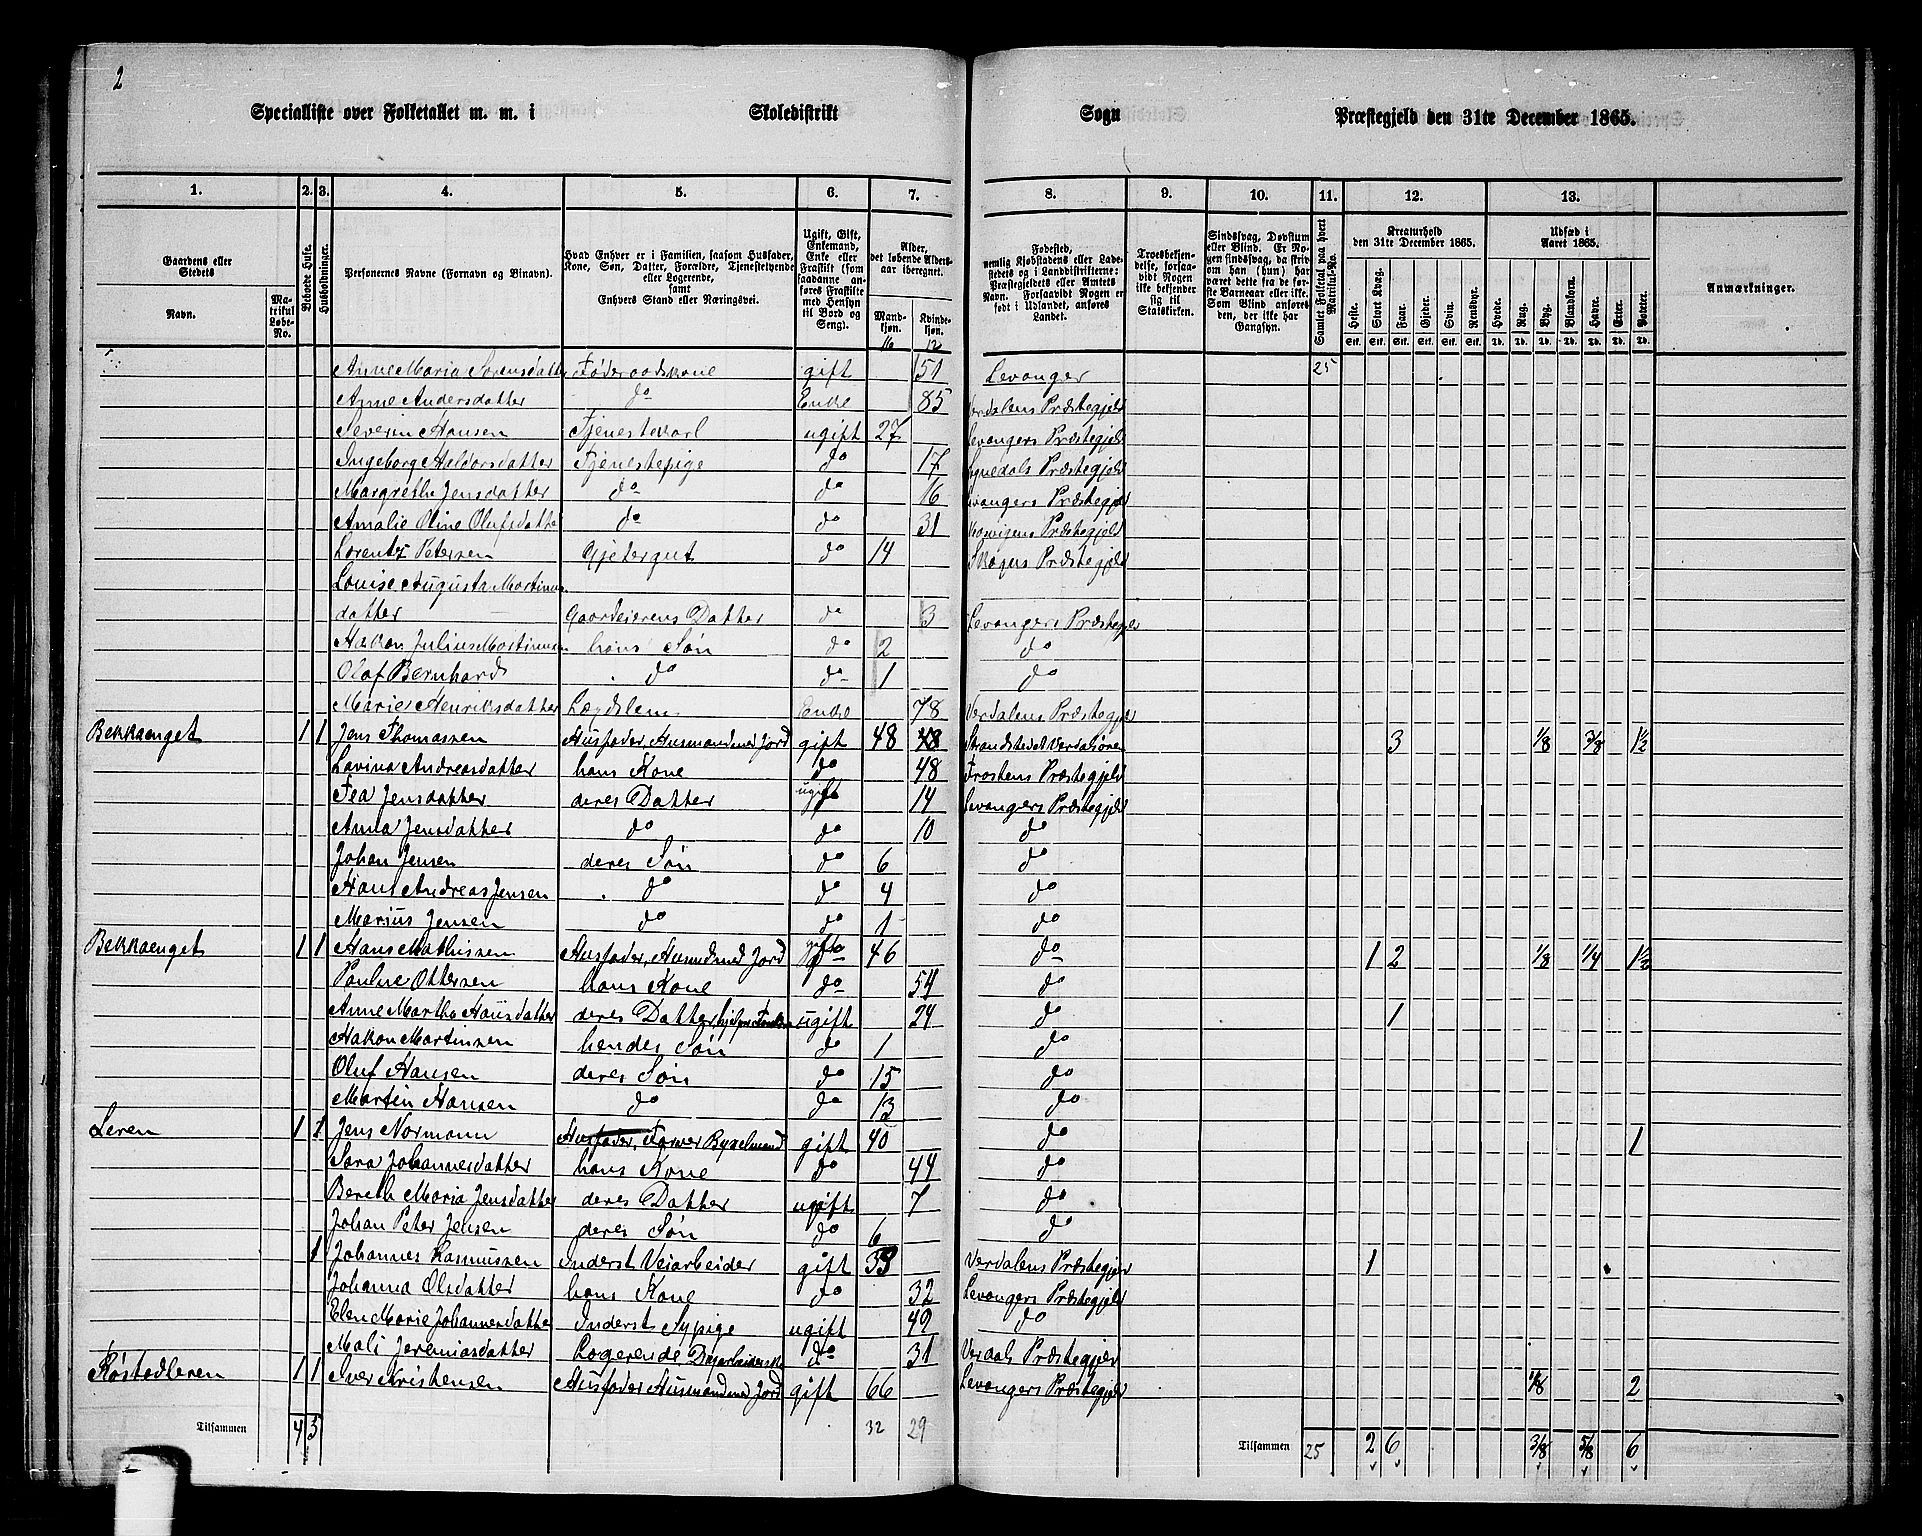 2
Specialliste over Folketallet m. m. i Skoledistrikt Sogn Præstegjeld den 31te December 1865.
1. 2. 3. 4. 5. 6. 7. 8. 9. 10. 11. 12. 13.
Gaardens eller Stedets
Navn. Matrikul Løbe-No.
Beboede Huse.
Husholdninger.
Personernes Navne (Fornavn og Binavn).
Hvad Enhver er i Familien, saasom Husfader, Kone, Søn, Datter, Forældre, Tjenestetyende eller Logerende, samt Enhvers Stand eller Næringsvei.
Ugift, Gift, Enkemand, Enke eller Fraskilt (som saadanne anføres Fraskilte med Hensyn til Bord og Seng).
Alder, det løbende Aldersaar iberegnet.
Mandkjøn. Kvindekjøn.
16 12
Fødested, nemlig Kjøbstadens eller Ladestedets og i Landdistrikterne: Præstegjeldets eller Amtets Navn. Forsaavidt Nogen er født i Udlandet, anføres Landet.
Troesbekjendelse, forsaavidt Nogen ikke bekjender sig til Statskirken.
Sindssvag, Døvstum eller Blind. Er Nogen sindssvag, da skrives om han (hun) har været dette fra de første Barneaar eller ikke. Som Blind anføres den, der ikke har Gangsyn.
Samlet Folketal paa hvert Matrikul-No.
Kreaturhold den 31te December 1865.
Heste. Stort Kvæg. Faar. Gjeder. Svin. Rensdyr.
Udsæd i Aaret 1865.
Hvede. Rug. Byg. Blandkorn. Havre. Erter. Poteter.
Stk. Stk. Stk. Stk. Stk. Stk. Td. Td. Td. Td. Td. Td. Td.
Anmærkninger.
Anne Maria Sørensdatter Føderaadskone gift 51 Levanger 25
Anne Andersdatter do Enke 85 Verdalens Præstegjeld
Severin Hansen Tjenestekarl ugift 27 Levangers Præstegjeld
Ingeborg Haldorsdatter Tjenestepige do 17 Præstegjeld
Margrethe Jensdatter do do 16 Levangers Præstegjeld
Amalie Oline Olufsdatter do do 31 Præstegjeld
Lorentz Petersen Gjetergut do 14 Skogns Præstegjeld
Louise Augusta Martinus
datter Gaardeierens Datter do 3 Levangers Præstegjeld
Hakon Julius Martinusen hans Søn do 2 do
Olaf Bernhard do do 1 do
Marie Henriksdatter Lægdslem Enke 78 Verdalens Præstegjeld
Bekkaenget 1 1 Jens Thomassen Husfader, Husmand med Jord gift 48 48 Strandstedet Verdalsøren 3 1/8 3/8 1½
Lavina Andreasdatter hans Kone do 48 Frostens Præstegjeld
Fea Jensdatter deres Datter ugift 14 Levangers Præstegjeld
Anna Jensdatter do do 10 do
Johan Jensen deres Søn do 6 do
Hans Andreas Jensen do do 4 do
Marius Jensen do do 1 do
Bekkaenget 1 1 Hans Mathissen Husfader, Husmd med Jord gift 46 do 1 2 1/8 1/4 1½
Pauline Ottersen hans Kone do 54 do
Anne Martha Hansdatter deres Datter, hjelper ugift 24 do 1
Hakon Martinsen hendes Søn do 1 do
Oluf Hansen deres Søn do 15 do
Martin Hansen do do 13 do
Leren 1 1 Jens Normann Husfader, Farver Bygselmand gift 40 do 1
Sara Johannesdatter hans Kone do 44 do
Bereth Maria Jensdatter deres Datter ugift 7 do
Johan Peter Jensen deres Søn do 6 do
1 Johannes Rasmussen Inderst Veiarbeider gift 33 Verdalens Præstegjeld 1
Johanna Olsdatter hans Kone do 32 Levangers Præstegjeld
Elen Marie Johannesdatter Inderst Sypige ugift 49 do
Mali Jeremiasdatter Logerende Dagarbeiderske do 31 Verdals Præstegjeld
Røstadleren 1 1 Iver Kristensen Husfader Husmand med Jord gift 66 Levangers Præstegjeld 1/8 2
Tilsammen 4 5 32 29 Tilsammen 25 2 6 3/8 5/8 6